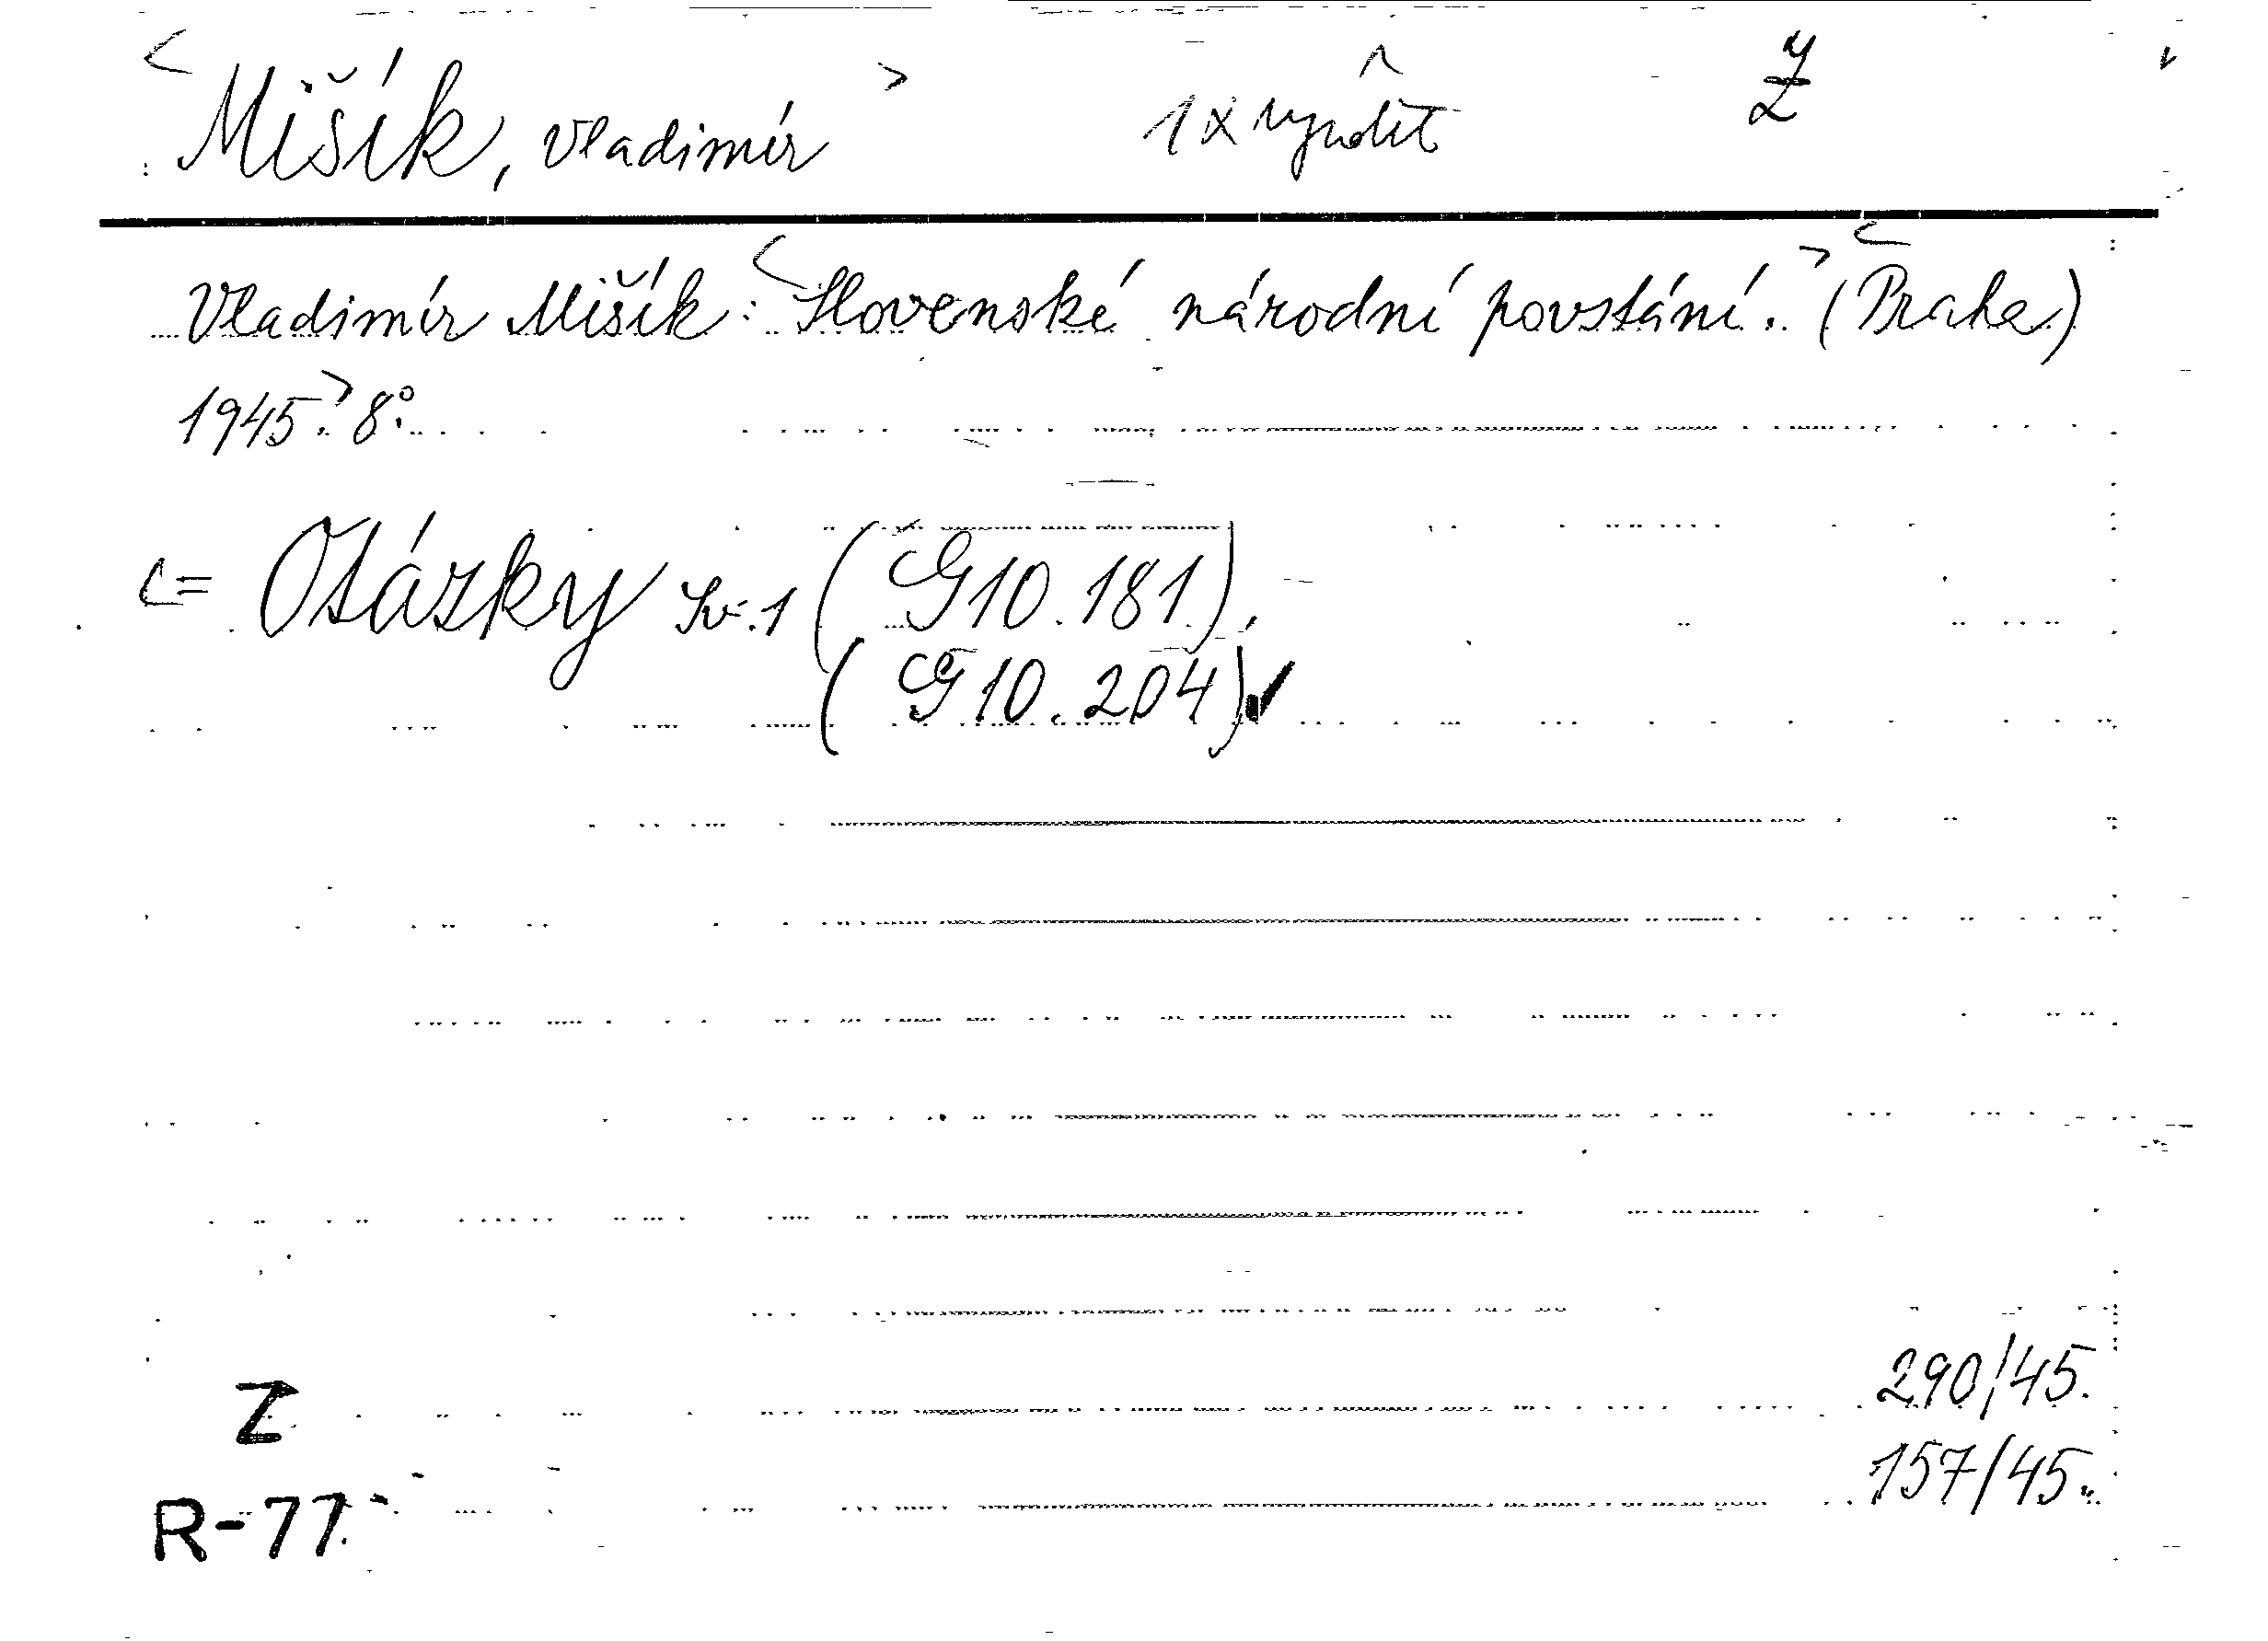 Mišík, Vladimír 1x Z
Vladimír Mišík: Slovenské národní povstání. (Praha)
1945. 8°.
= Otázky Sv. 1 (G10.181),
(G10.204)
290/45.
Z
157/45.
R-77.